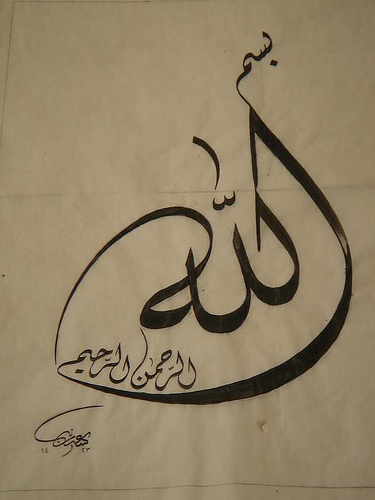 بسم
الله
الرحمن الرحيم
١٤ ٢٣